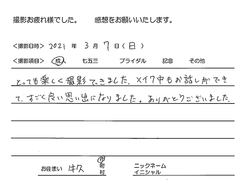 撮影お疲れ様でした。 感想をお願いいたします。
<撮影日時> 2021 年 3 月 7 日 ( 日 )
<撮影項目> 成人 七五三 ブライダル 記念 その他
とっても楽しく撮影できました。メイク中もお話しができ
て、すごく良い思い出になりました。ありがとうございました。
お住まい 牛久 市 町 村
ニックネーム
イニシャル